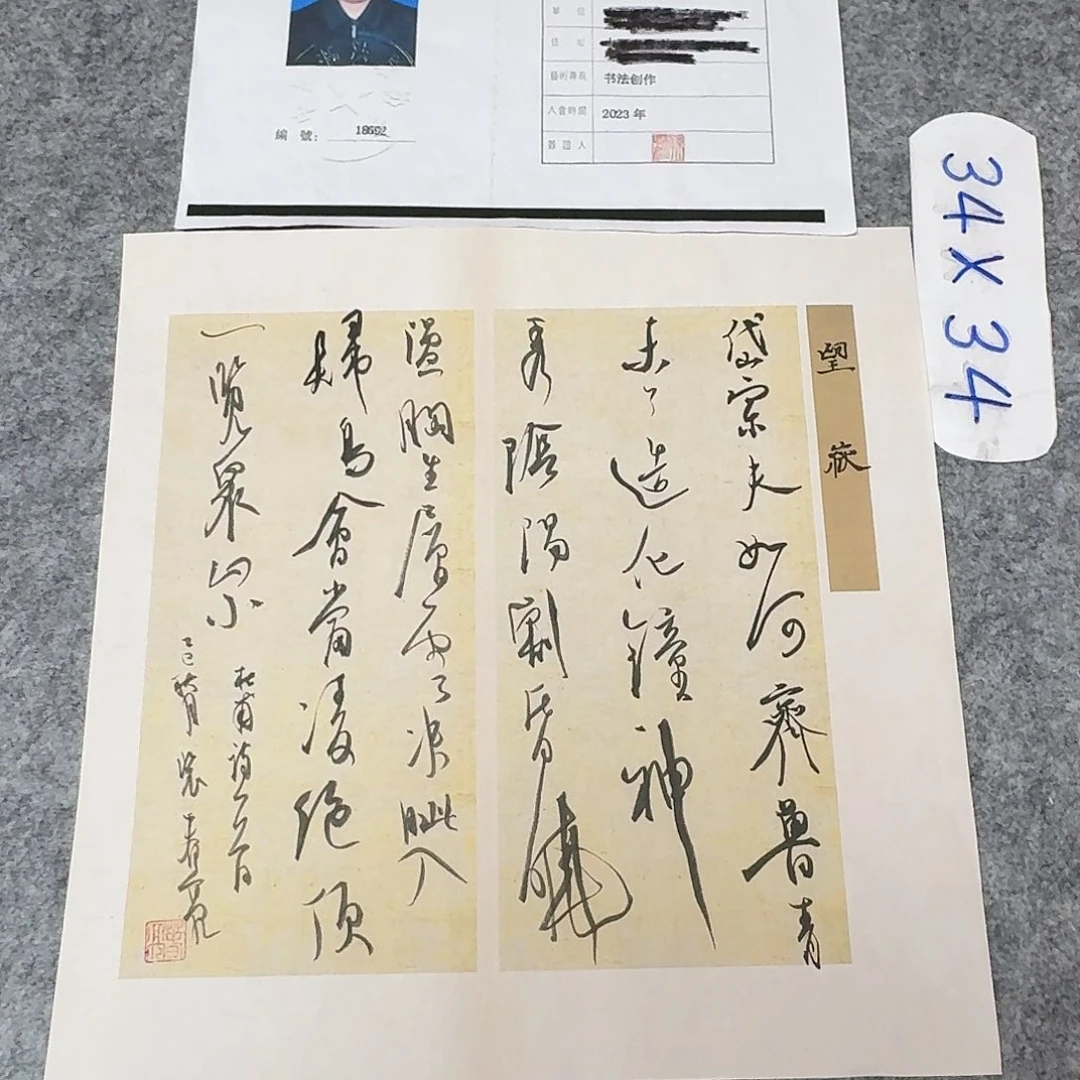 單位
編號: 18692
藝術專長 书法创作
入會時間 2023 年
簽證人
34 X 34
望嶽
岱宗夫如何齊魯青
未了造化鐘神
秀陰陽割昏曉
盪胸生層雲決眦入
歸鳥會當凌絕頂
一覽眾山小
杜甫詩一首
乙巳秋月